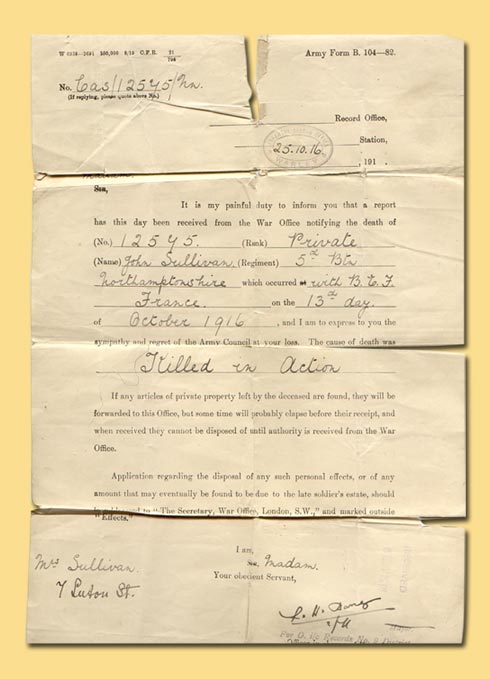 Army Form B. 104—82.
No. Cas/12545/Nn.
(If replying, please quote above No.)
Record Office,
Station,
25.10.16
WARLEY
, 191 .
Madam,
Sir,
It is my painful duty to inform you that a report
has this day been received from the War Office notifying the death of
(No.) 12545. (Rank) Private
(Name) John Sullivan. (Regiment) 5th Btn
Northamptonshire which occurred at with B.E.F.
France. on the 13th day.
of October 1916 , and I am to express to you the
sympathy and regret of the Army Council at your loss. The cause of death was
Killed in Action
If any articles of private property left by the deceased are found, they will be
forwarded to this Office, but some time will probably elapse before their receipt, and
when received they cannot be disposed of until authority is received from the War
Office.
Application regarding the disposal of any such personal effects, or of any
amount that may eventually be found to be due to the late soldier's estate, should
to "The Secretary, War Office, London, S.W.," and marked outside
"Effects."
I am,
Sir, Madam.
Your obedient Servant,
Mrs Sullivan.
7 Luton St.
Major
For O. i/c Records No. 9 District